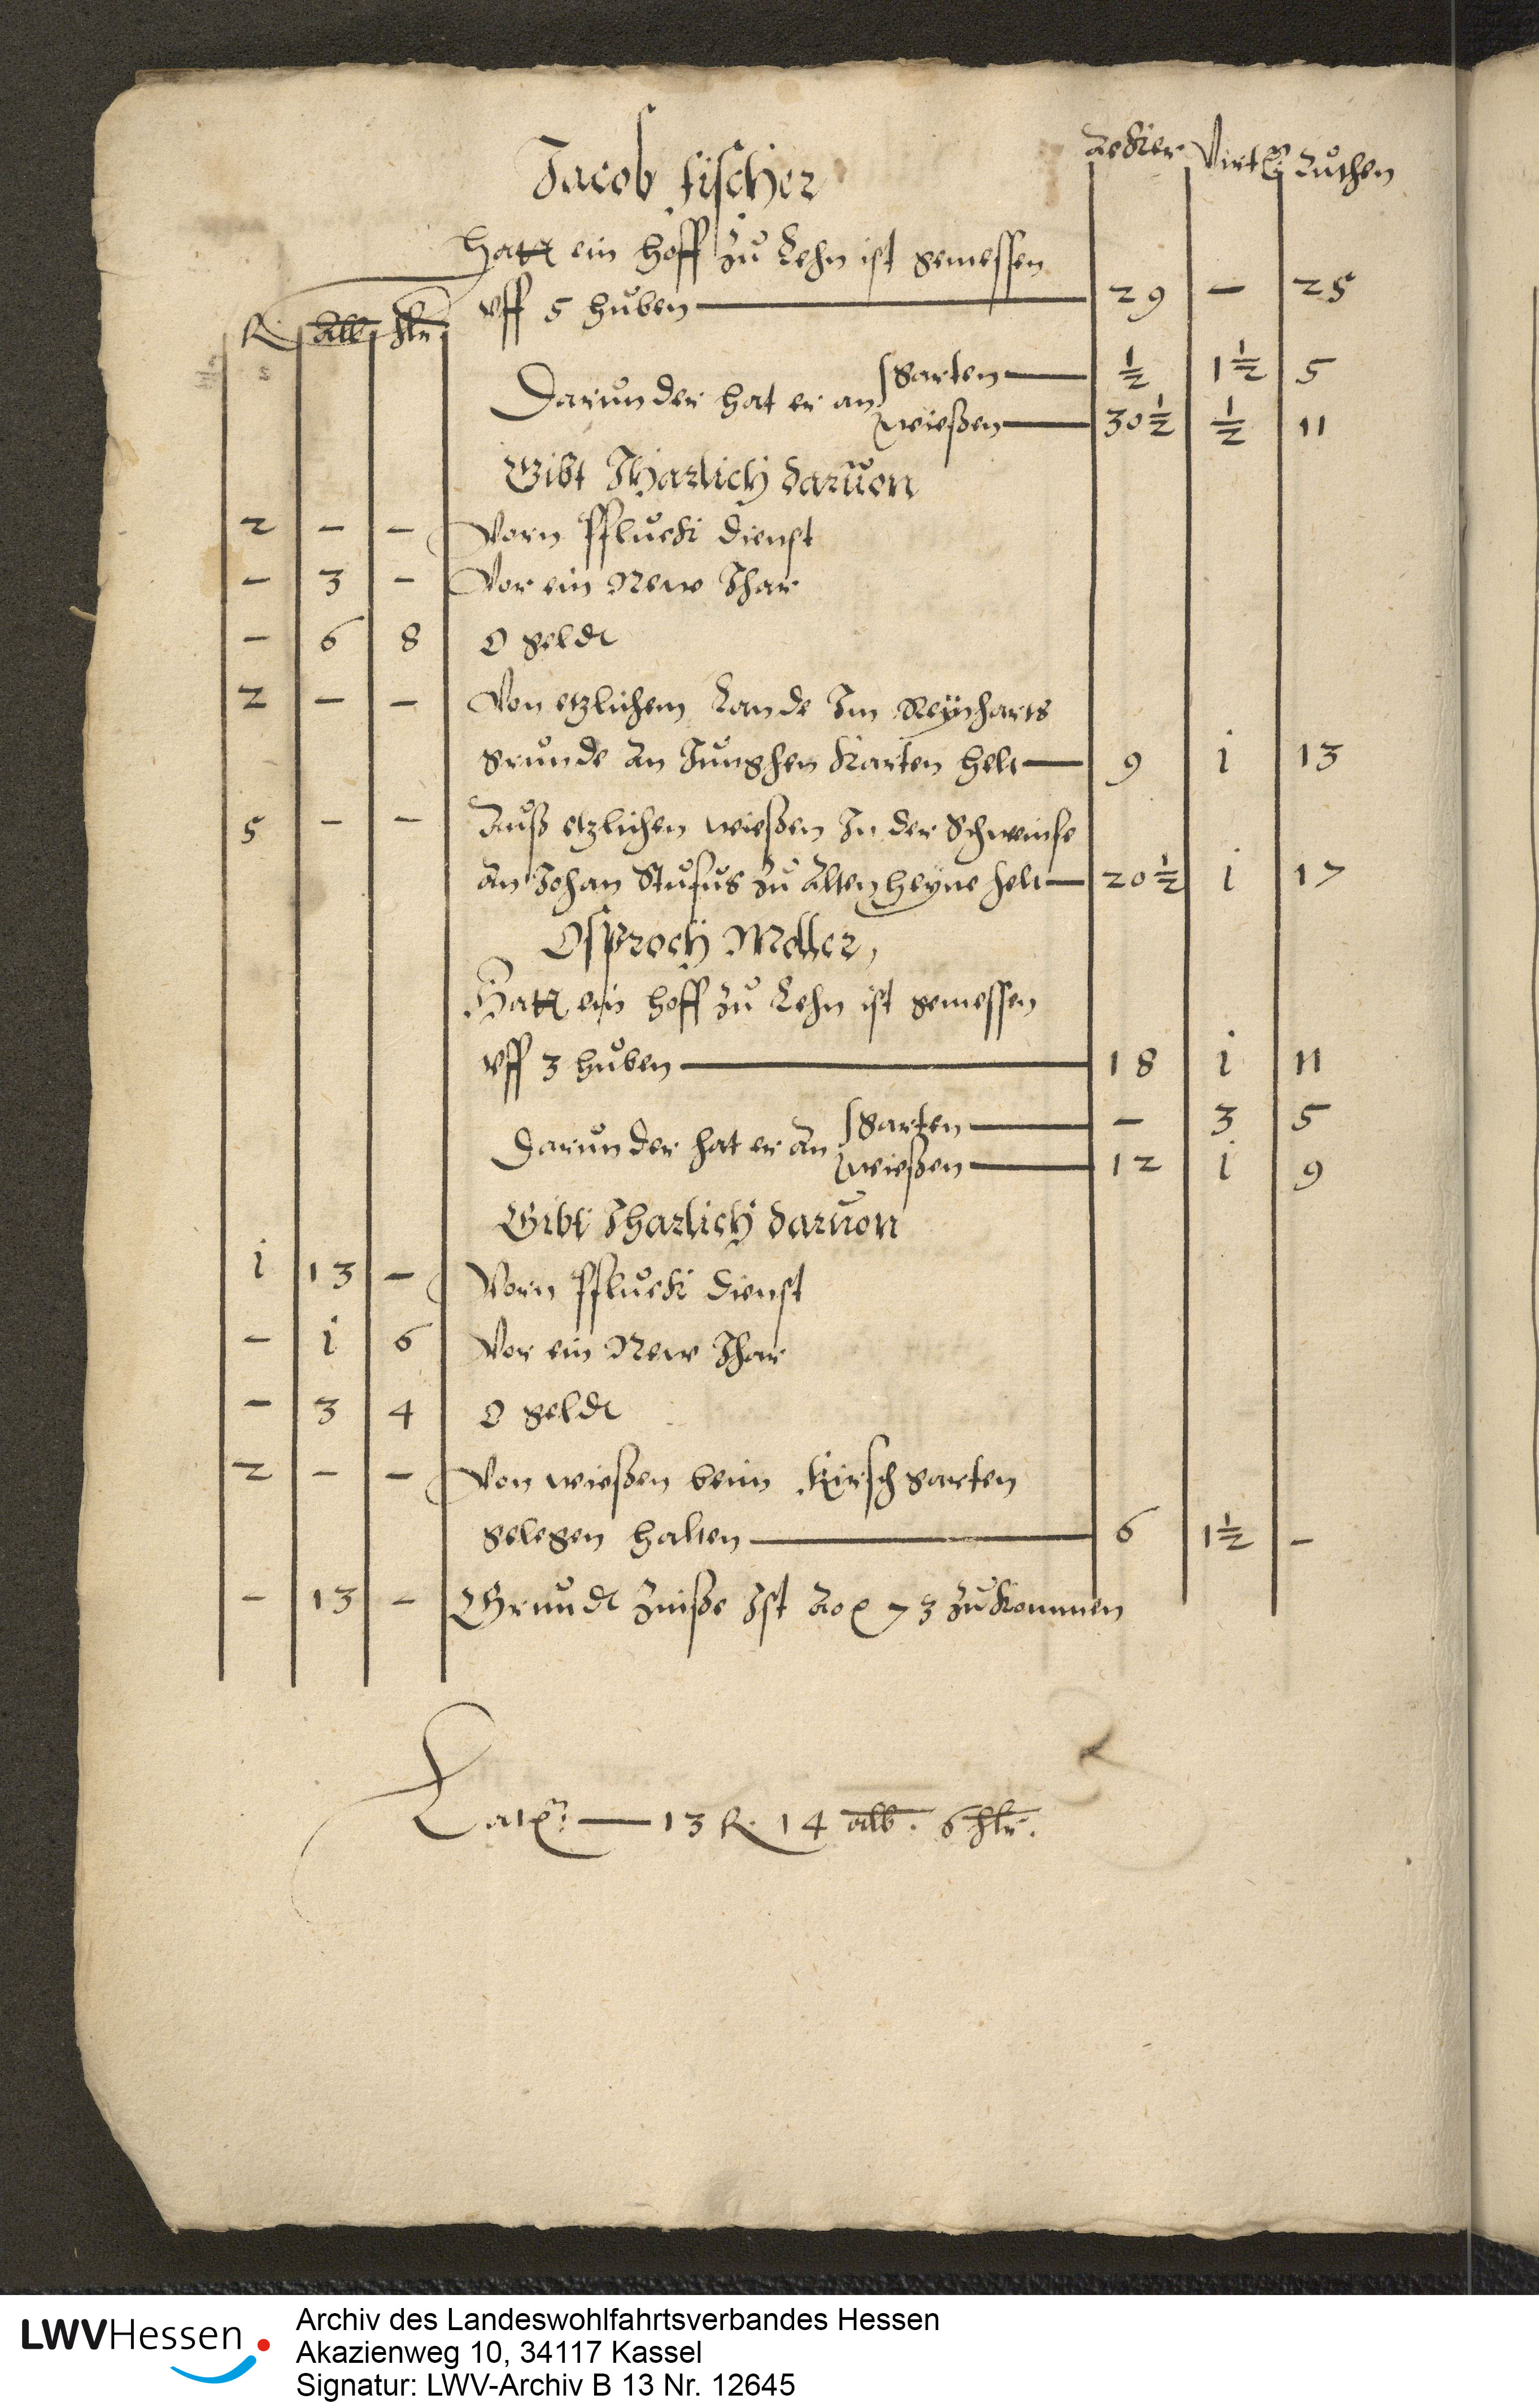 Jacob fischer
Acker Virtel Ruthen
Hatt ein hoff zu Lehn ist gemessen
vff 5 huben — 29 — 25
fl. alb hlr
Darunder hat er an garten — ½ 1½ 5
wießen — 30½ ½ 11
Gibt Jharlich daruon
2 — — Vorn Pfluck dienst
— 3 — Vor ein New Jhar
— 6 8 O geldt
2 — — Von etzlichem Lande Im Reynharts
grunde an Junghen Karten helt — 9 1 13
5 — — Auß etzlichen wießen In der Schweinfe
an Johan Stufus zu Altenheyne helt — 20½ 1 17
Osproch Moller,
Hatt ein hoff zu Lehn ist gemessen
vff 3 huben — 18 1 11
Darunder hat er an garten — — 3 5
wießen — 12 1 9
Gibt Jharlich daruon
1 13 — Vorn Pfluck dienst
— 1 6 Vor ein New Jhar
— 3 4 O geldt
2 — — Von wießen beim Kirschgarten
gelegen halten — 6 1½ —
— 13 — Grundt Zinße Ist Ao 73 zukommen
Latus — 13 fl. 14 alb. 6 hlr.
LWVHessen
Archiv des Landeswohlfahrtsverbandes Hessen
Akazienweg 10, 34117 Kassel
Signatur: LWV-Archiv B 13 Nr. 12645